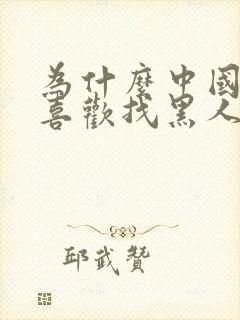 為什麼中國
喜歡找黑人
邱武贊